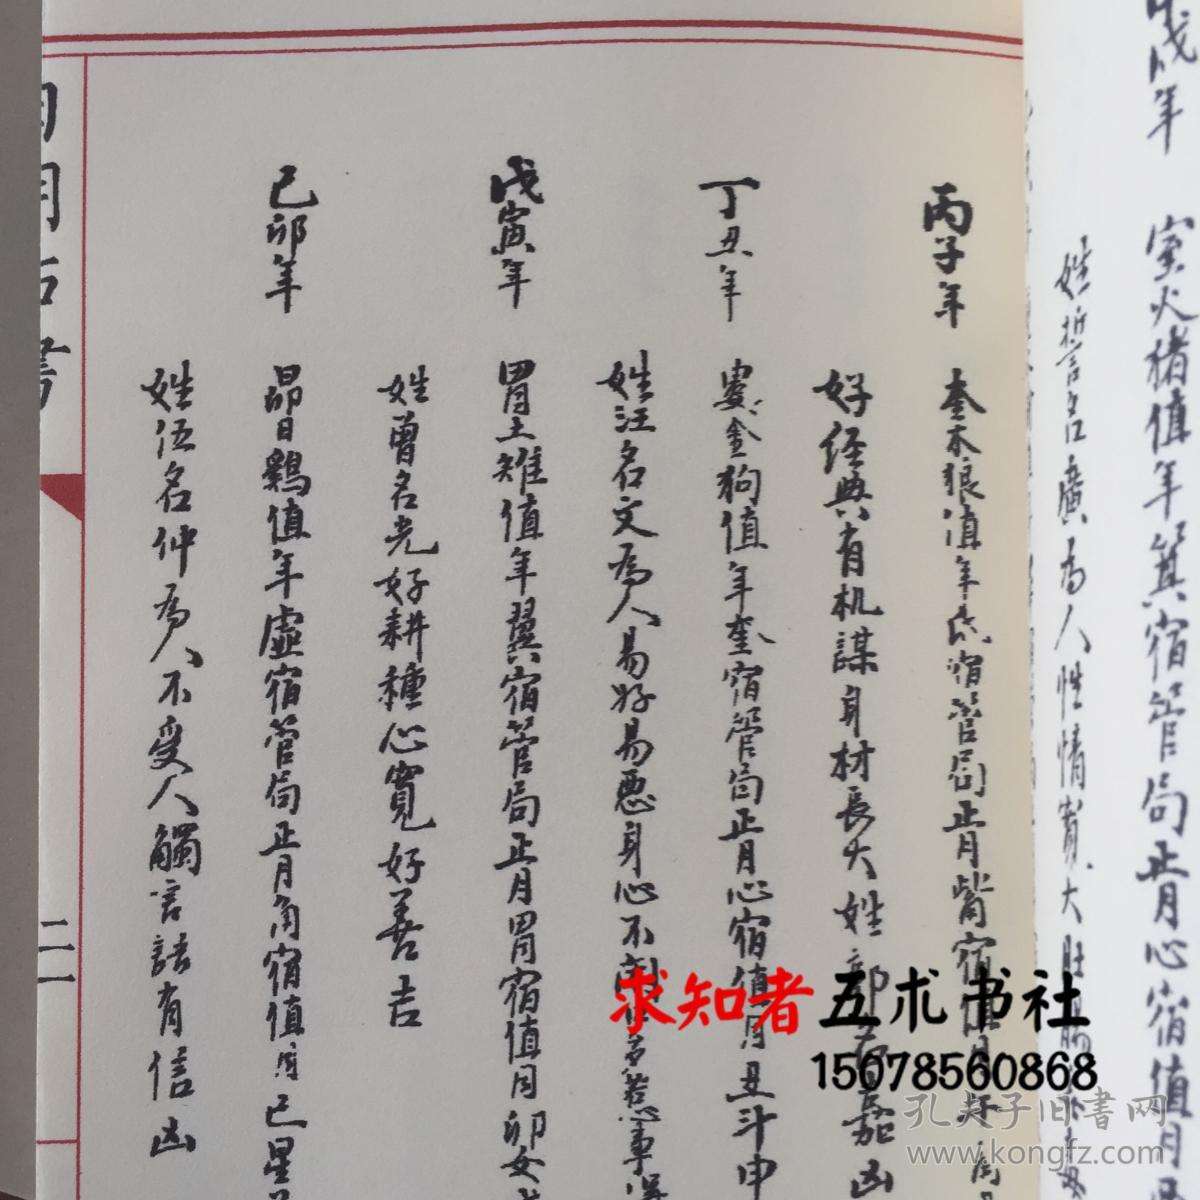 戊年 室火猪值年箕宿管局正月心宿值月
姓哲名廣為人性情寬大
丙子年 奎木狼值年氐宿管局正月觜宿值月
好经典有机謀身材長大姓郭名嘉凶
丁丑年 婁金狗值年奎宿管局正月心宿值月丑斗申
姓汪名文為人易好易惡身心不闲多惹事
戊寅年 胃土雉值年翼宿管局正月胃宿值月卯女
姓曾名光好耕種心寬好善吉
己卯年 昴日鷄值年虛宿管局正月角宿值月巳星
姓伍名仲為人不受人觸言語有信凶
二一
求知者 五术书社
15078560868
孔夫子旧书网
www.kongfz.com